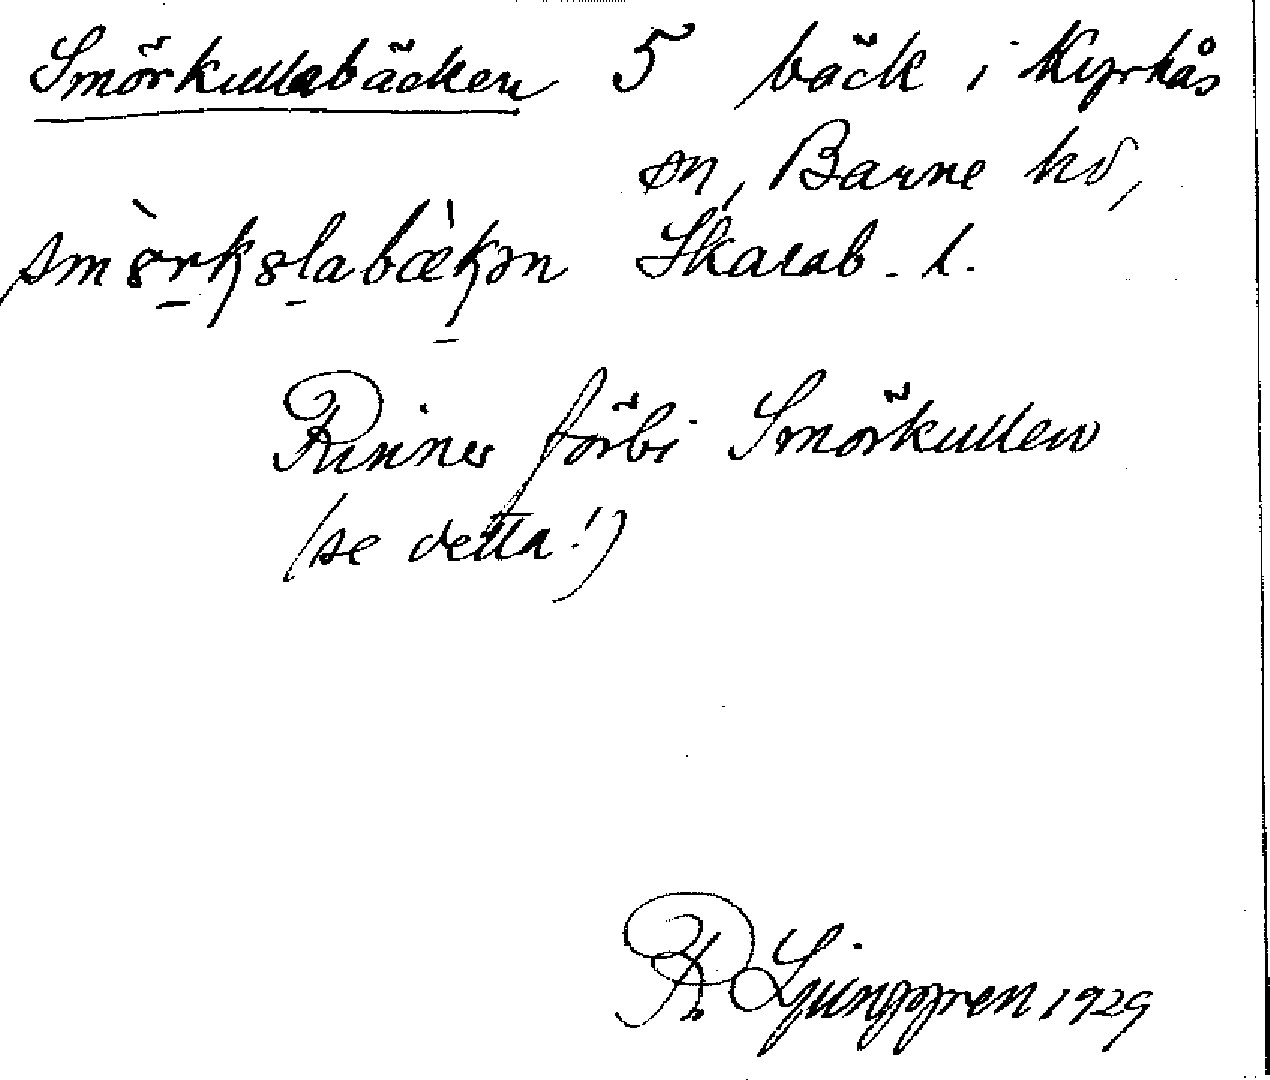 Smörkullabäcken 5 bäck i Kyrkås
sn, Barne hd,
Skarab. l.
Rinner förbi Smörkullen
(se detta!)
R Ljunggren 1929